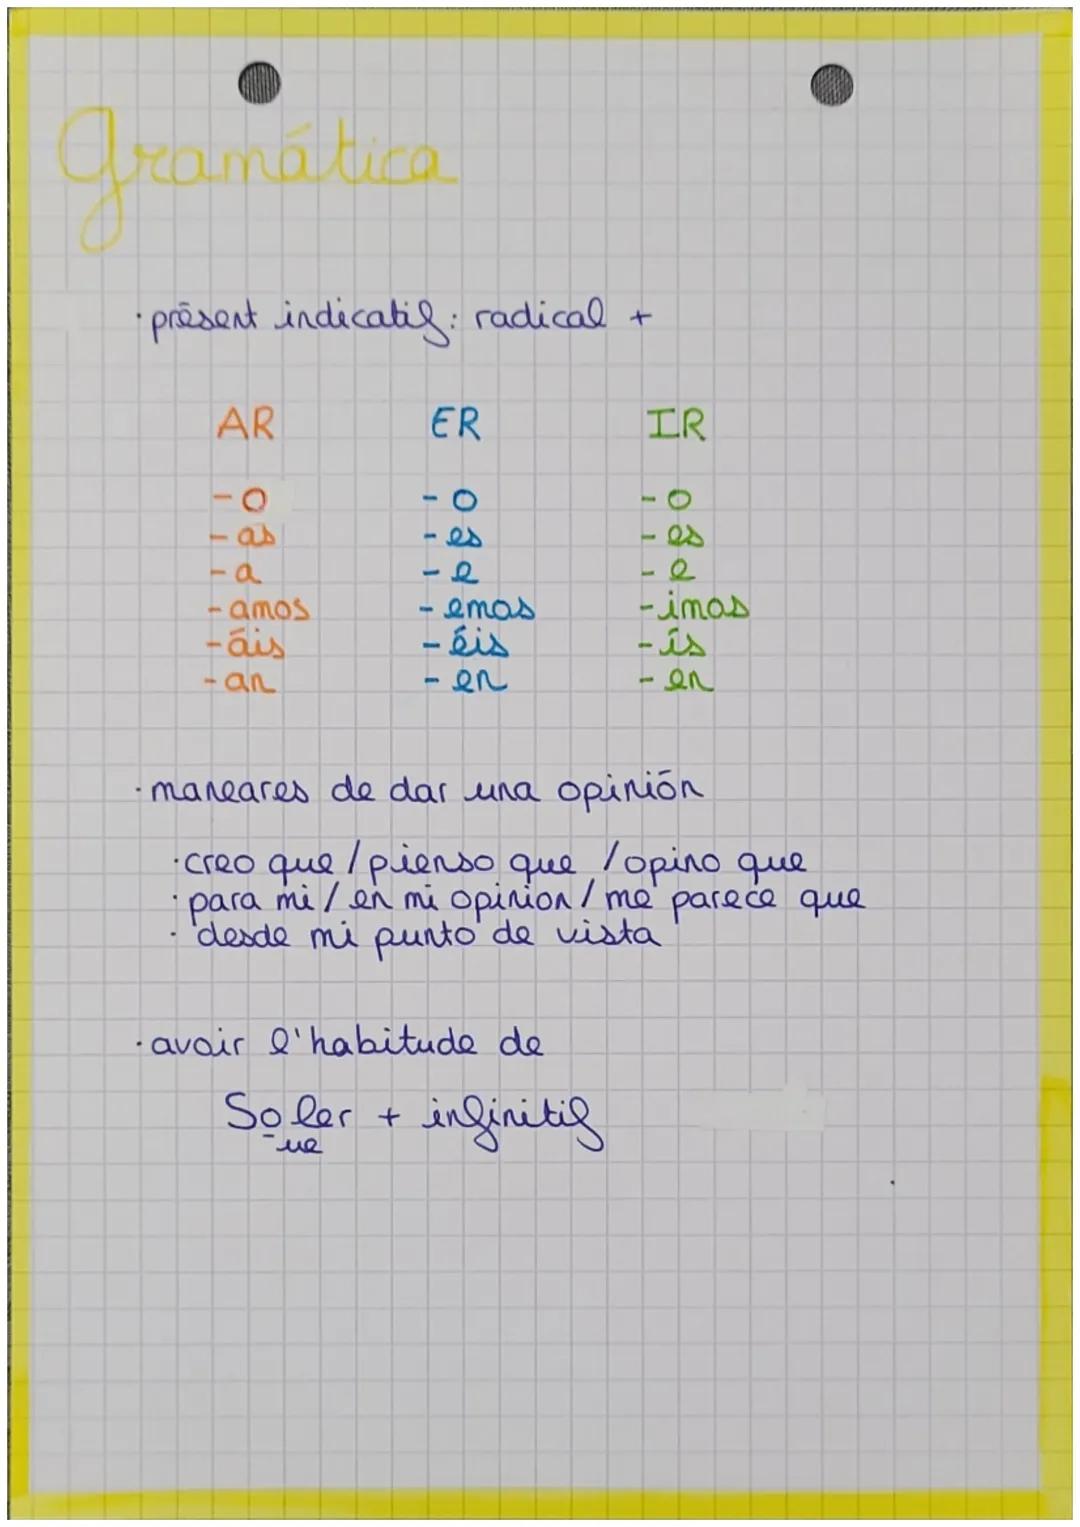 Gramática
· présent indicatif: radical +
AR ER IR
-o -o -o
-as -es -es
-a -e -e
-amos -emos -imos
-áis -éis -ís
-an -en -en
· maneares de dar una opinión
· creo que / pienso que / opino que
· para mi / en mi opinion / me parece que
· desde mi punto de vista
· avoir l'habitude de
Soler + infinitif
ue